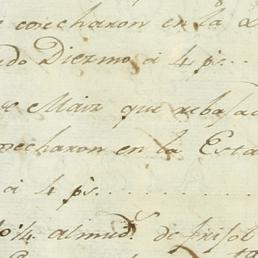 cocecharon en la
Diezmo á 4 ps..
e Maiz que rebaja
cocecharon en la Esta
á 4 ps...........
almuds. de frisol